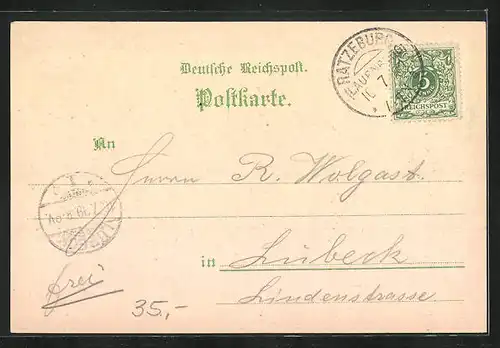 Deutsche Reichspost.
Postkarte.
RATZEBURG
5
REICHSPOST
An
Herrn R. Wolgast.
in Lübeck
Lindenstrasse.
frei
35,-